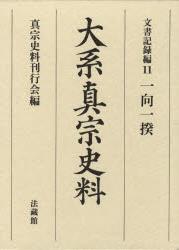 文書記録編11 一向一揆
大系真宗史料
真宗史料刊行会編
法藏館